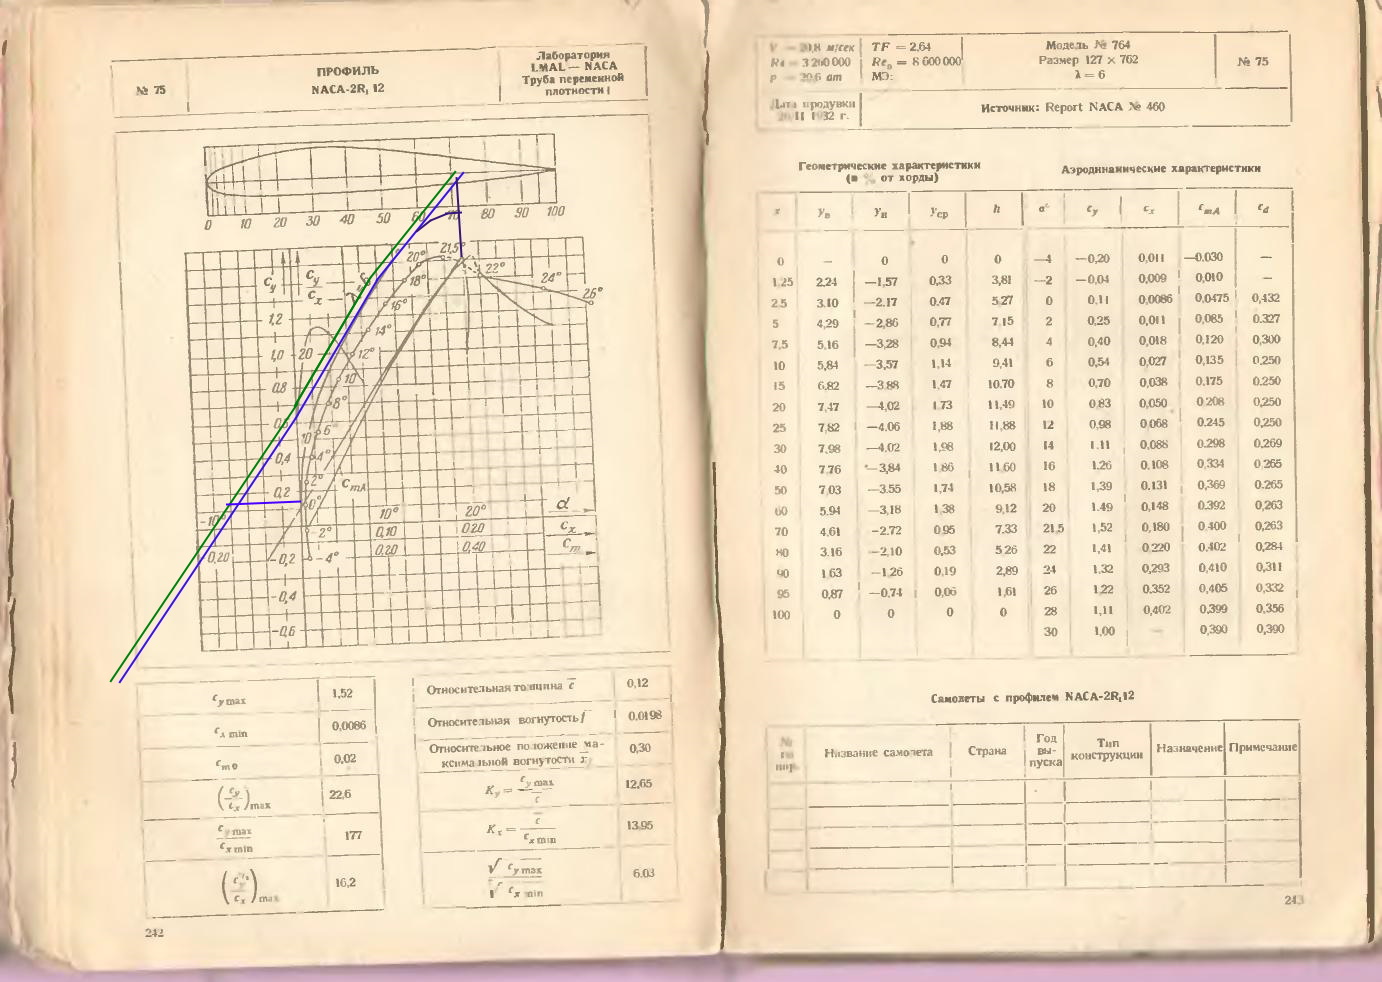 № 75
ПРОФИЛЬ
NACA-2R, 12
Лаборатория
LMAL — NACA
Труба переменной
плотности
0 10 20 30 40 50 60 70 80 90 100
Cy
Cy
Cx
1,2
1,0
20
0,8
0,6
10
0,4
0,2
-10°
0,20
-0,2
-0,4
-0,6
20° 21,5°
18°
22°
24°
26°
16°
14°
12°
10
8°
6°
4°
2°
0°
-2°
-4°
CmA
10° 20° α
0,10 0,20 Cx
0,20 0,40 Cm
c y max 1,52
c x min 0,0086
c m0 0,02
(c y / c x) max 22,6
c y max / c x min 177
16,2
Относительная толщина c̄ 0,12
Относительная вогнутость f̄ 0,0198
Относительное положение ма-
ксимальной вогнутости x̄ 0,30
K y = c y max / c̄ 12,65
K x = c̄ / c x min 13,95
√ c y max / √ c x min 6,03
242
м/сек TF = 2,64
Re 3 260 000 Re = 8 600 000
20,6 ат МЭ:
Модель № 764
Размер 127 × 762
λ = 6
№ 75
Дата продувки
Источник: Report NACA № 460
Геометрические характеристики
(в % от хорды)
Аэродинамические характеристики
x yв yн yср h α° cy cx cmA cd
0 — 0 0 0 —4 —0,20 0,011 —0,030 —
1,25 2,24 —1,57 0,33 3,81 —2 —0,04 0,009 0,010 —
2,5 3,10 —2,17 0,47 5,27 0 0,11 0,0086 0,0475 0,432
5 4,29 —2,86 0,77 7,15 2 0,25 0,011 0,085 0,327
7,5 5,16 —3,28 0,94 8,44 4 0,40 0,018 0,120 0,300
10 5,84 —3,57 1,14 9,41 6 0,54 0,027 0,135 0,250
15 6,82 —3,88 1,47 10,70 8 0,70 0,038 0,175 0,250
20 7,47 —4,02 1,73 11,49 10 0,83 0,050 0,208 0,250
25 7,82 —4,06 1,88 11,88 12 0,98 0,068 0,245 0,250
30 7,98 —4,02 1,98 12,00 14 1,11 0,088 0,298 0,269
40 7,76 —3,84 1,86 11,60 16 1,26 0,108 0,334 0,265
50 7,03 —3,55 1,74 10,58 18 1,39 0,131 0,369 0,265
60 5,94 —3,18 1,38 9,12 20 1,49 0,148 0,392 0,263
70 4,61 —2,72 0,95 7,33 21,5 1,52 0,180 0,400 0,263
80 3,16 —2,10 0,53 5,26 22 1,41 0,220 0,402 0,284
90 1,63 —1,26 0,19 2,89 24 1,32 0,293 0,410 0,311
95 0,87 —0,74 0,06 1,61 26 1,22 0,352 0,405 0,332
100 0 0 0 0 28 1,11 0,402 0,399 0,356
30 1,00 — 0,390 0,390
Самолеты с профилем NACA-2R,12
№ Название самолета Страна Год вы-пуска Тип конструкции Назначение Примечание